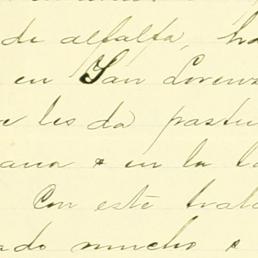 de alfalfa, ha
en San Lorenz
e les da pastu
ana & en la ta
Con este trata
ado mucho &